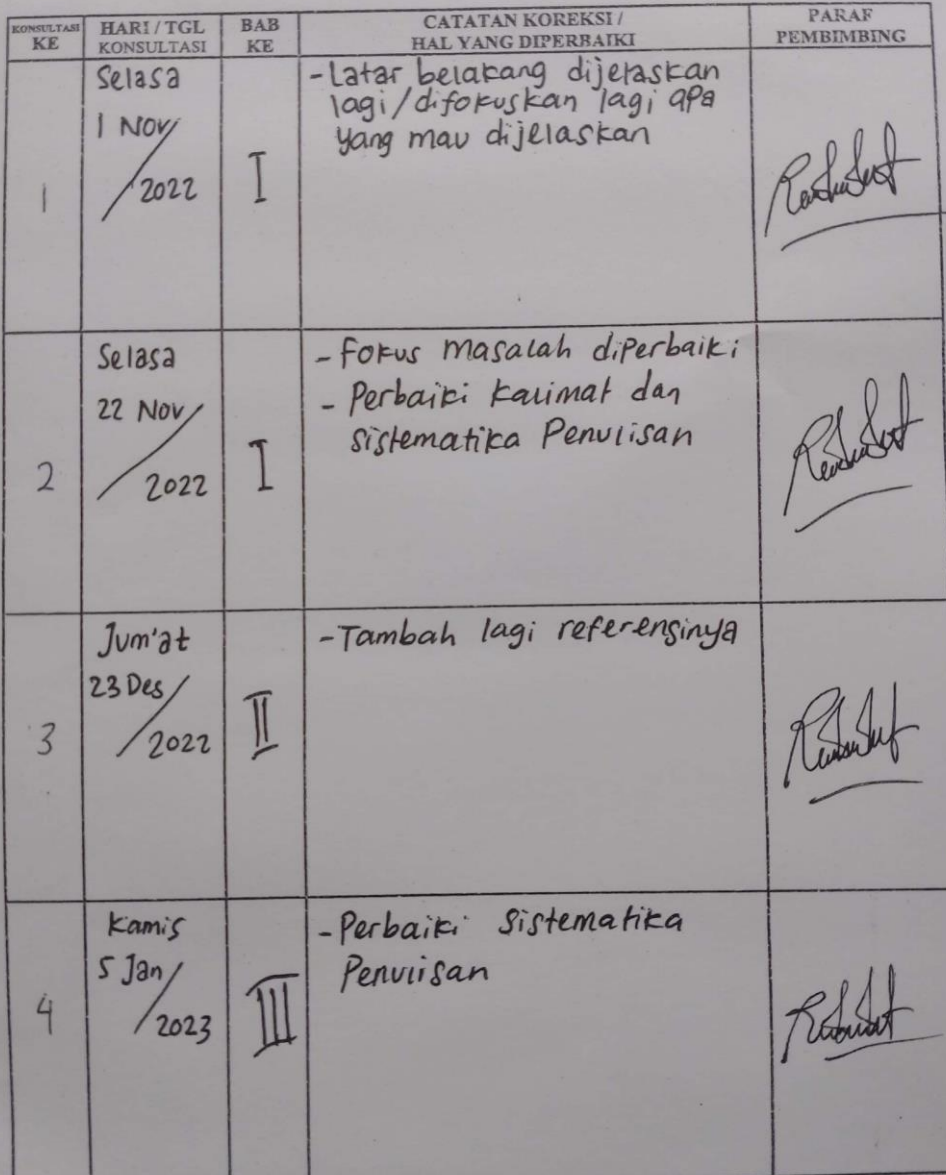 KONSULTASI KE
HARI / TGL KONSULTASI
BAB KE
CATATAN KOREKSI / HAL YANG DIPERBAIKI
PARAF PEMBIMBING
1
Selasa
1 Nov/
2022
I
- Latar belakang dijelaskan
lagi/difokuskan lagi apa
yang mau dijelaskan
2
Selasa
22 Nov/
2022
I
- Fokus masalah diperbaiki
- Perbaiki kalimat dan
sistematika Penulisan
3
Jum'at
23 Des/
2022
II
- Tambah lagi referensinya
4
Kamis
5 Jan/
2023
III
- Perbaiki sistematika
Penulisan